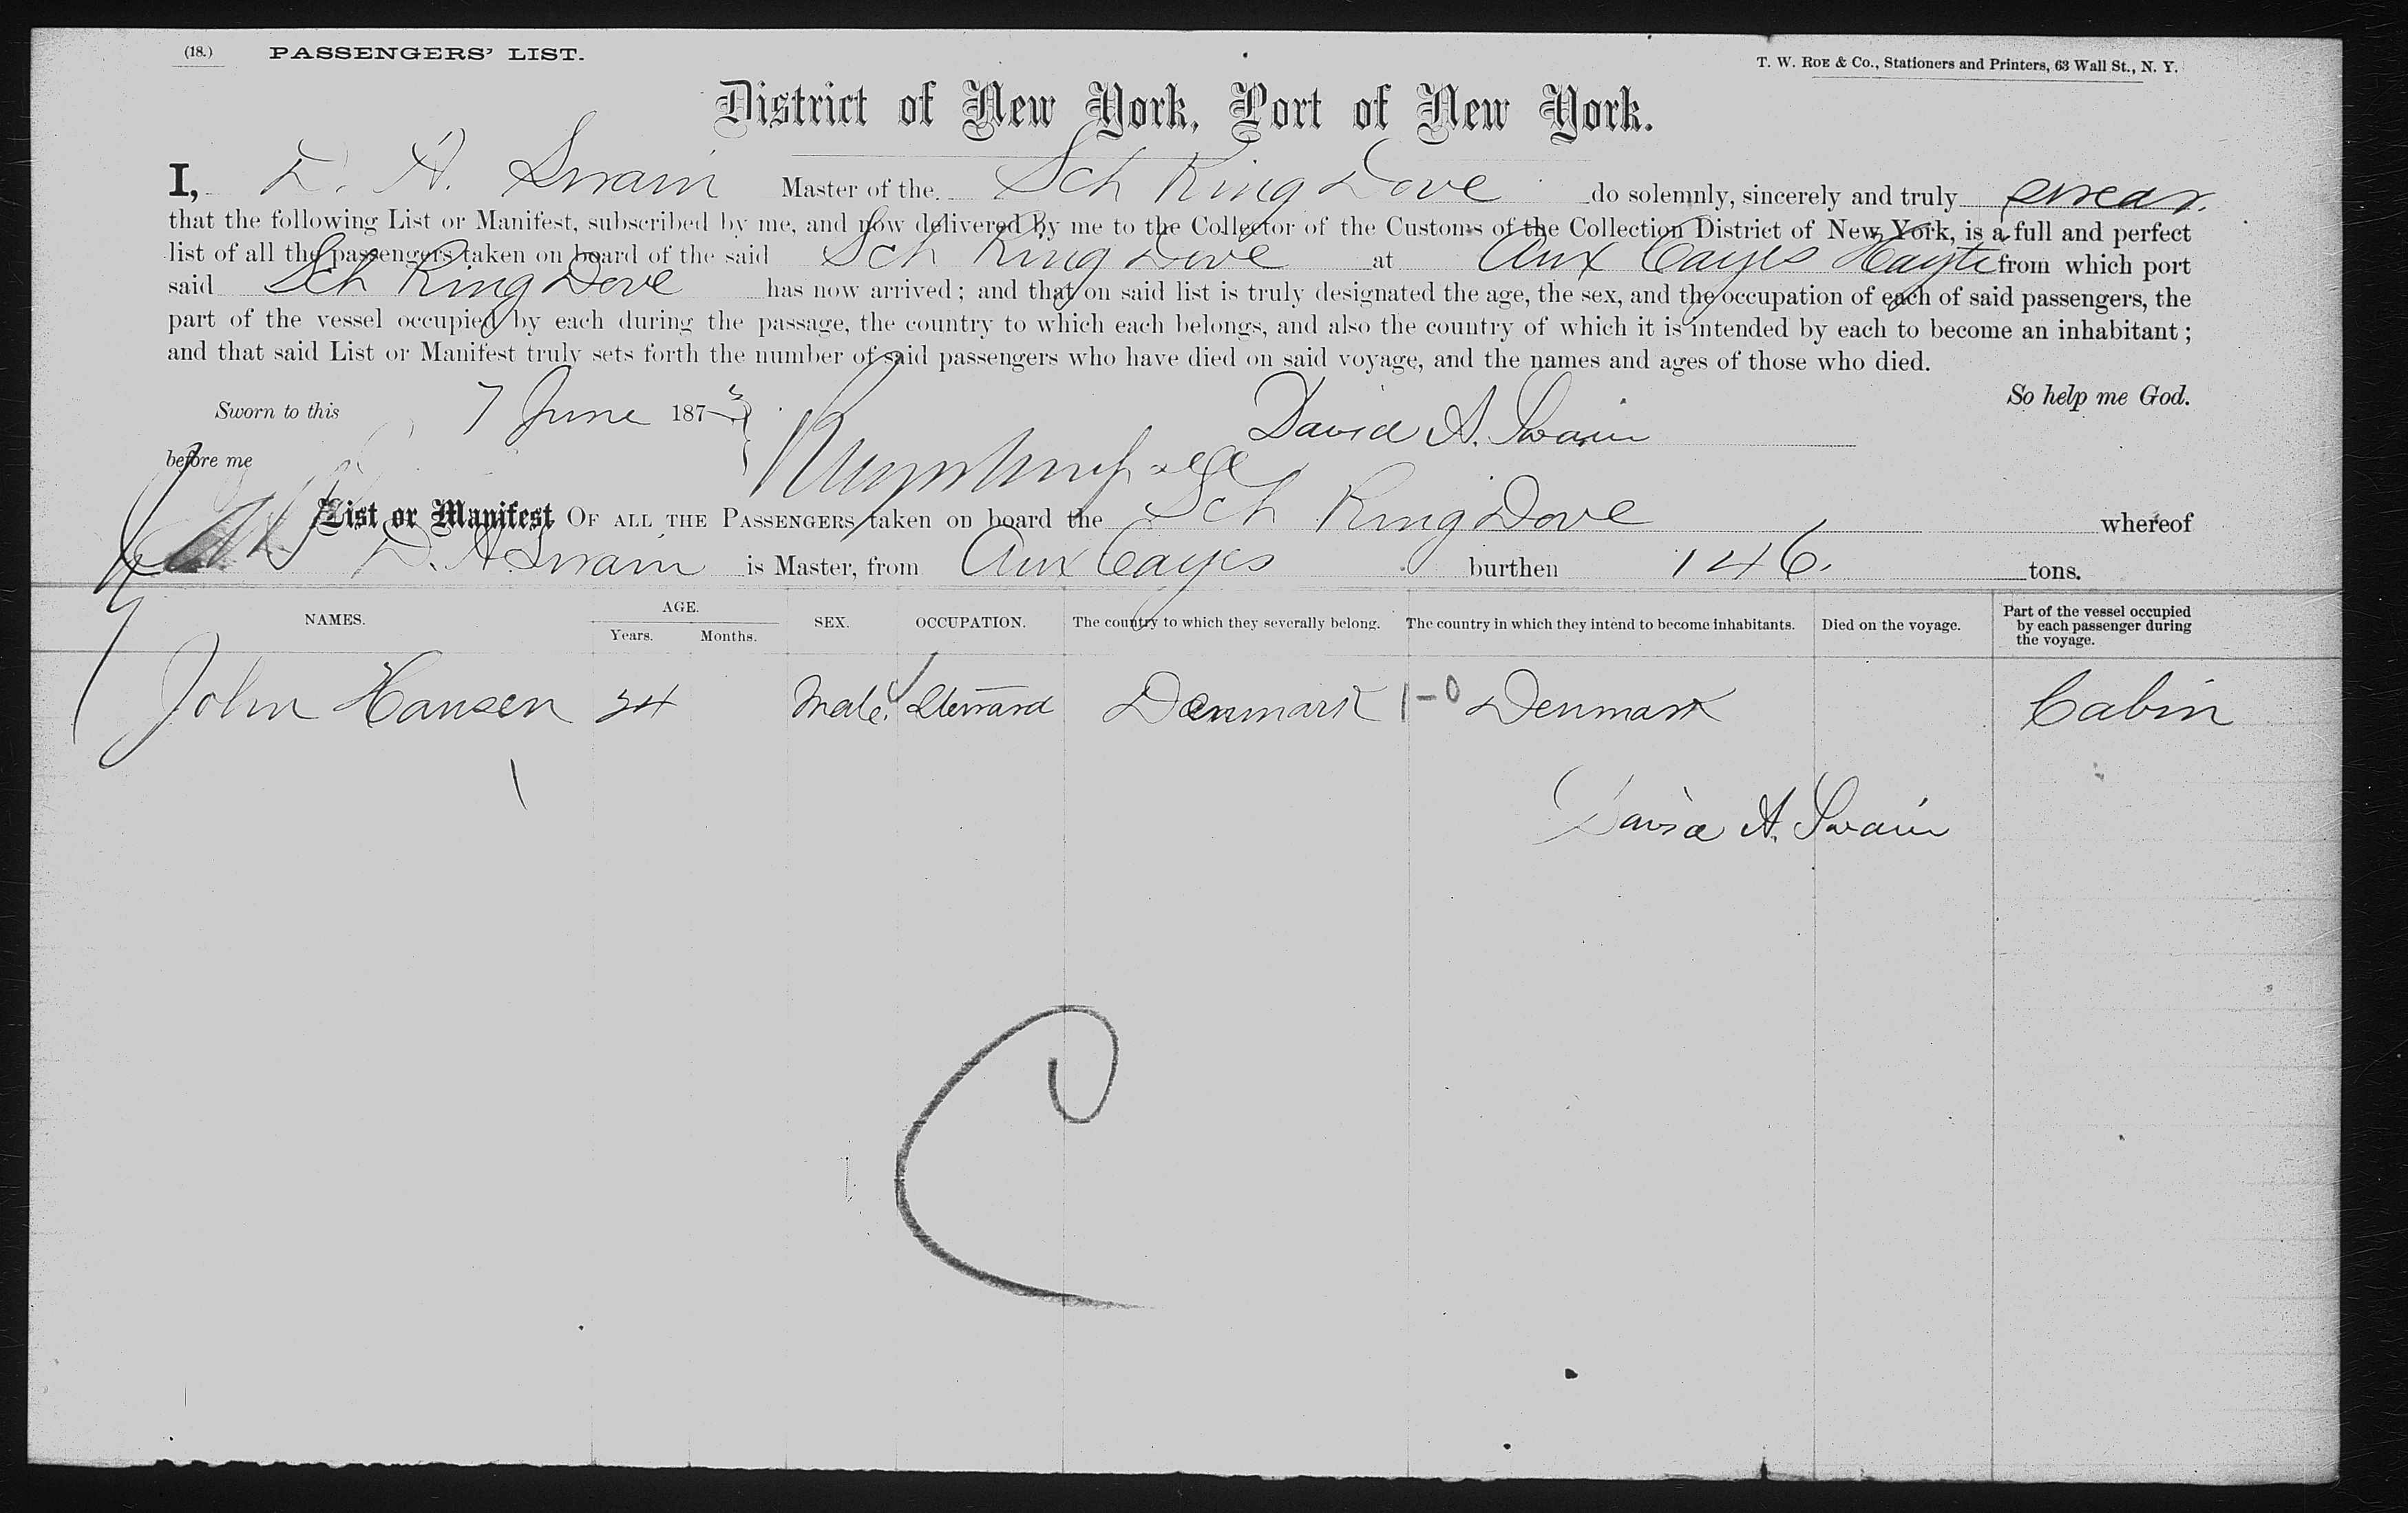 (18.) PASSENGERS' LIST. T. W. ROE & Co., Stationers and Printers, 63 Wall St., N. Y.
District of New York, Port of New York.
I, D. A. Swain Master of the Sch Ring Dove do solemnly, sincerely and truly swear.
that the following List or Manifest, subscribed by me, and now delivered by me to the Collector of the Customs of the Collection District of New York, is a full and perfect
list of all the passengers taken on board of the said Sch Ring Dove at Aux Cayes Hayti from which port
said Sch Ring Dove has now arrived; and that on said list is truly designated the age, the sex, and the occupation of each of said passengers, the
part of the vessel occupied by each during the passage, the country to which each belongs, and also the country of which it is intended by each to become an inhabitant;
and that said List or Manifest truly sets forth the number of said passengers who have died on said voyage, and the names and ages of those who died.
So help me God.
Sworn to this 7 June 1873 David A. Swain
before me
List or Manifest OF ALL THE PASSENGERS taken on board the Sch Ring Dove whereof
D. A. Swain is Master, from Aux Cayes burthen 146. tons.
NAMES. AGE. Years. Months. SEX. OCCUPATION. The country to which they severally belong. The country in which they intend to become inhabitants. Died on the voyage. Part of the vessel occupied by each passenger during the voyage.
John Hansen 34 Male. Steward Denmark 1-0 Denmark Cabin
1
David A. Swain
C